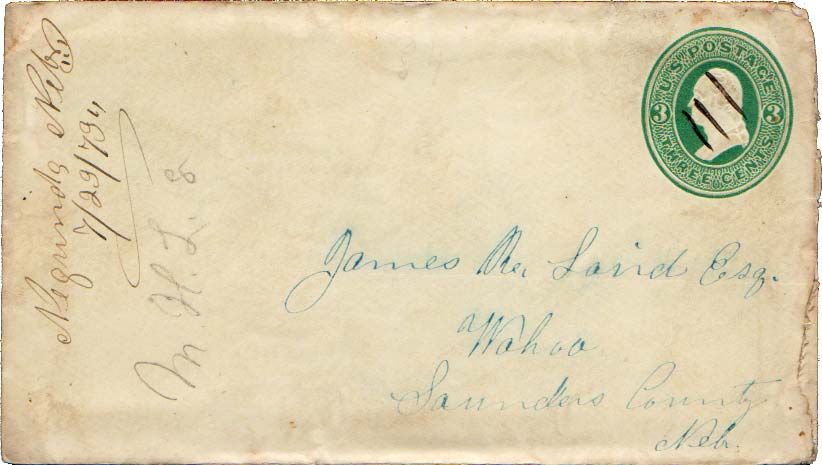 Negunda Neb
7/29/79
M. H. L. 8
U.S. POSTAGE
3 3
THREE CENTS
James Mc Laird Esq.
Wahoo
Saunders County
Neb.